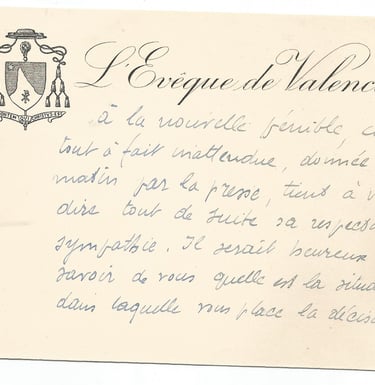 L'Evêque de Valenc
à la nouvelle pénible,
tout à fait inattendue, donnée
matin par la presse, tient à v
dire tout de suite sa respect
sympathie. Il serait heureux
savoir de vous quelle est la situa
dans laquelle vous place la décis